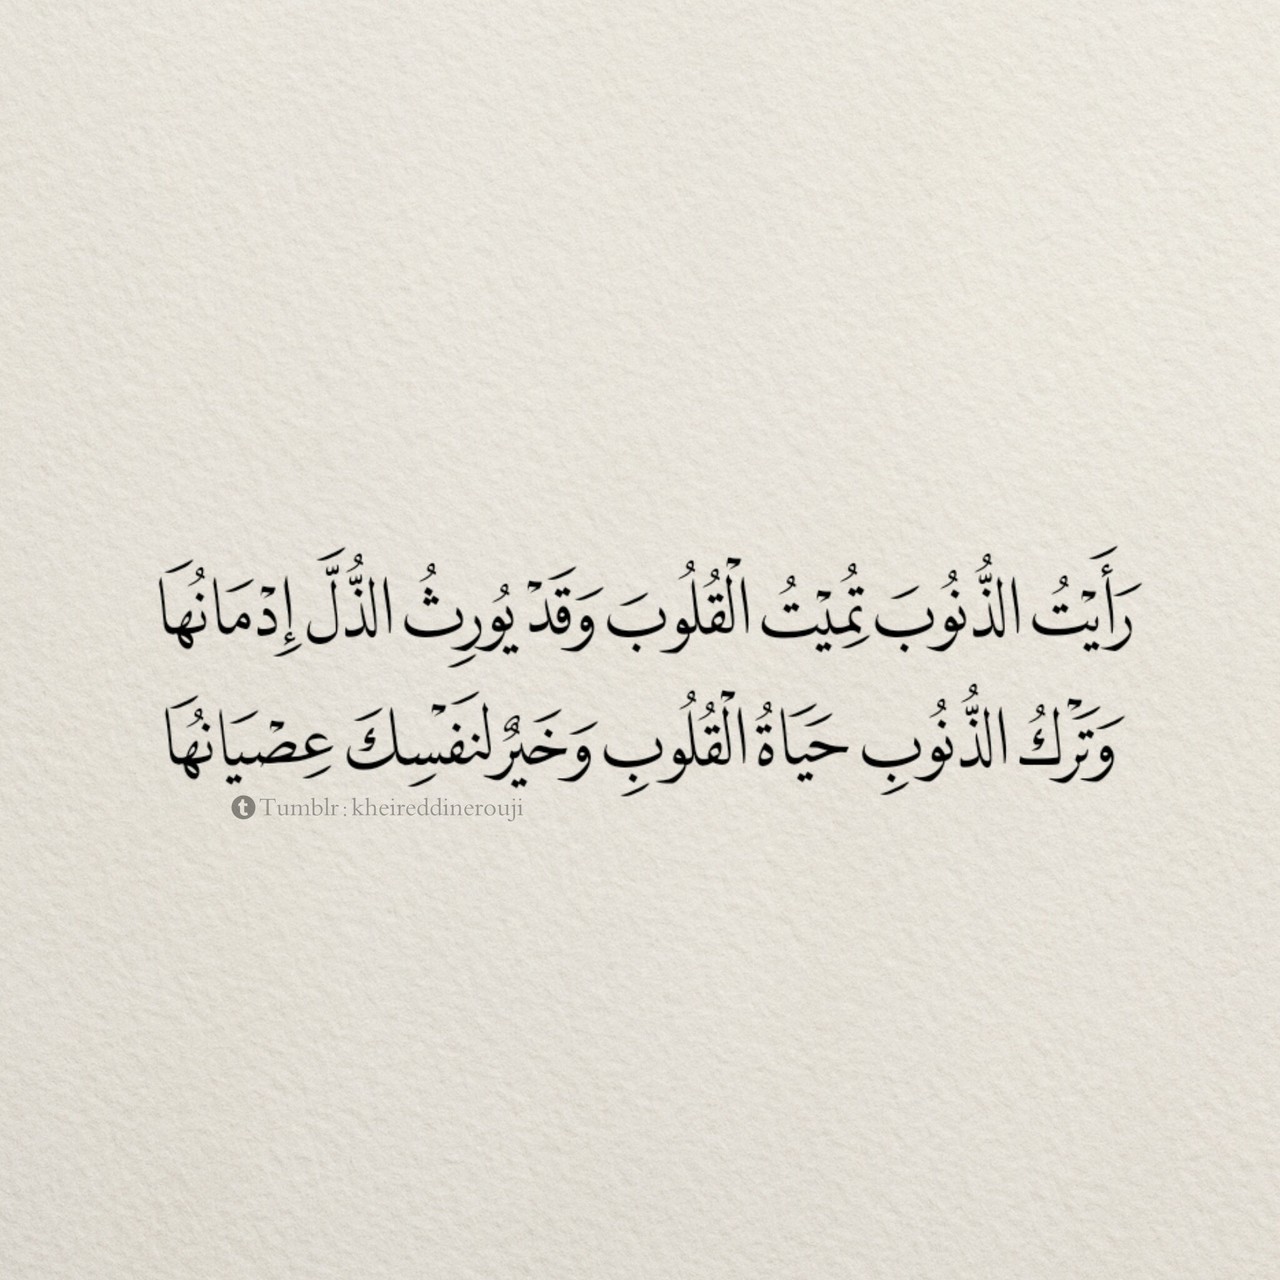 رَأَيْتُ الذُّنُوبَ تُمِيْتُ الْقُلُوبَ وَقَدْ يُورِثُ الذُّلَّ إِدْمَانُهَا
وَتَرْكُ الذُّنُوبِ حَيَاةُ الْقُلُوبِ وَخَيْرٌ لنَفْسِكَ عِصْيَانُهَا
Tumblr: kheireddinerouji